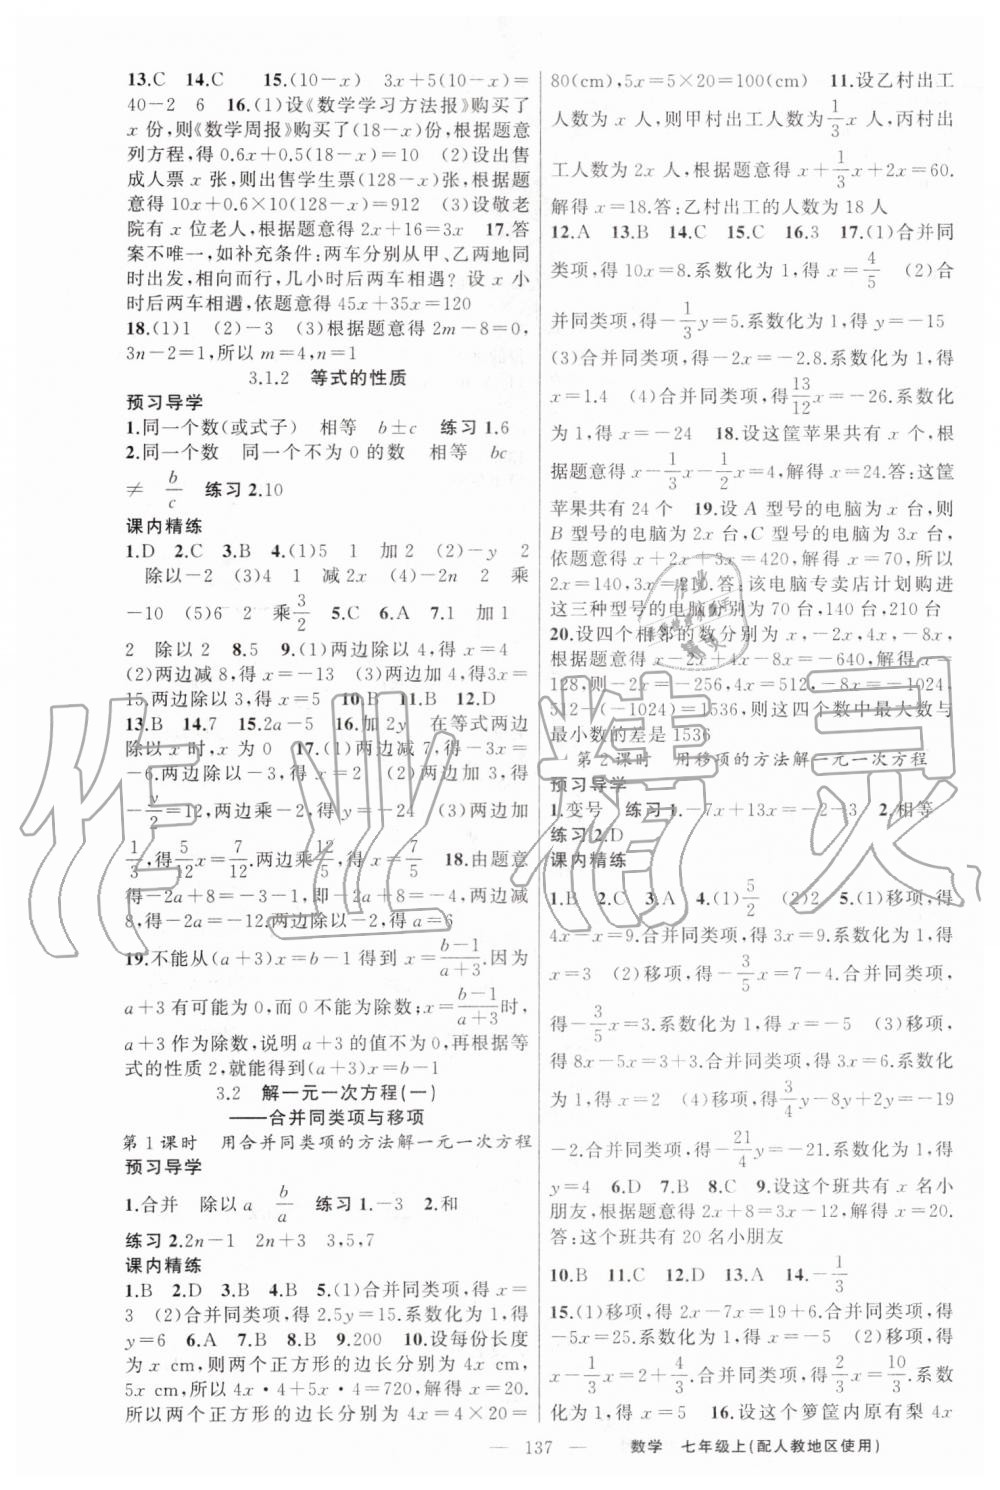 13.C　14.C　15.(10－x)　3x＋5(10－x)＝
40－2　6　16.(1)设《数学学习方法报》购买了
x 份,则《数学周报》购买了(18－x)份,根据题意
列方程,得 0.6x＋0.5(18－x)＝10　(2)设出售
成人票 x 张,则出售学生票(128－x)张,根据题
意得 10x＋0.6×10(128－x)＝912　(3)设敬老
院有 x 位老人,根据题意得 2x＋16＝3x　17.答
案不唯一,如补充条件:两车分别从甲、乙两地同
时出发,相向而行,几小时后两车相遇？设 x 小
时后两车相遇,依题意得 45x＋35x＝120
18.(1)1　(2)－3　(3)根据题意得 2m－8＝0,
3n－2＝1,所以 m＝4,n＝1
3.1.2　等式的性质
预习导学
1.同一个数(或式子)　相等　b±c　练习 1.6
2.同一个数　同一个不为 0 的数　相等　bc
≠　b/c　练习 2.10
课内精练
1.D　2.C　3.B　4.(1)5　1　加 2　(2)－y　2
除以－2　(3)4　1　减 2x　(4)－2n　2　乘
－10　(5)6　2　乘 3/2　5.C　6.A　7.1　加 1
2　除以 2　8.5　9.(1)两边加 1,得 x＝4
(2)两边减 8,得 x＝－13　(3)两边加 3,得 3x＝
15,两边除以 3,得 x＝5　10.B　11.B　12.D
13.B　14.7　15.2a－5　16.加 2y　在等式两边
除以 x 时,x 为 0　17.(1)两边减 7,得－3x＝
－6.两边除以－3,得 x＝2　(2)两边减 3,得
－y/2＝12,两边乘－2,得 y＝－24　(3)两边加
1/3,得 5/12x＝7/12.两边乘 12/5,得 x＝7/5　18.由题意
得－2a＋8＝－3－1,即－2a＋8＝－4,两边减
8,得－2a＝－12,两边除以－2,得 a＝6
19.不能从(a＋3)x＝b－1 得到 x＝(b－1)/(a＋3).因为
a＋3 有可能为 0,而 0 不能为除数;x＝(b－1)/(a＋3) 时,
a＋3 作为除数,说明 a＋3 的值不为 0,再根据等
式的性质 2,就能得到(a＋3)x＝b－1
3.2　解一元一次方程(一)
——合并同类项与移项
第 1 课时　用合并同类项的方法解一元一次方程
预习导学
1.合并　除以 a　b/a　练习 1.－3　2.和
练习 2.2n－1　2n＋3　3,5,7
课内精练
1.B　2.D　3.B　4.B　5.(1)合并同类项,得 x＝
3　(2)合并同类项,得 2.5y＝15.系数化为 1,得
y＝6　6.A　7.B　8.B　9.200　10.设每份长度
为 x cm,则两个正方形的边长分别为 4x cm,
5x cm,所以 4x·4＋5x·4＝720,解得 x＝20.
所以两个正方形的边长分别为 4x＝4×20＝
80(cm),5x＝5×20＝100(cm)　11.设乙村出工
人数为 x 人,则甲村出工人数为 1/3x 人,丙村出
工人数为 2x 人,根据题意得 x＋1/3x＋2x＝60.
解得 x＝18.答:乙村出工的人数为 18 人
12.A　13.B　14.C　15.C　16.3　17.(1)合并同
类项,得 10x＝8.系数化为 1,得 x＝4/5　(2)合
并同类项,得－1/3y＝5.系数化为 1,得 y＝－15
(3)合并同类项,得－2x＝－2.8.系数化为 1,得
x＝1.4　(4)合并同类项,得 13/12x＝－26.系数化
为 1,得 x＝－24　18.设这筐苹果共有 x 个,根
据题意得 x－1/3x－1/2x＝4,解得 x＝24.答:这筐
苹果共有 24 个　19.设 A 型号的电脑为 x 台,
B 型号的电脑为 2x 台,C 型号的电脑为 3x 台,
依题意得 x＋2x＋3x＝420,解得 x＝70,所以
2x＝140,3x＝210.答:该电脑专卖店计划购进
这三种型号的电脑分别为 70 台,140 台,210 台
20.设四个相邻的数分别为 x,－2x,4x,－8x,
根据题意得 x－2x＋4x－8x＝－640,解得 x＝
128,则－2x＝－256,4x＝512,－8x＝－1024,
512－(－1024)＝1536,则这四个数中最大数与
最小数的差是 1536
第 2 课时　用移项的方法解一元一次方程
预习导学
1.变号　练习 1.－7x＋13x＝－2－3　2.相等
练习 2.D
课内精练
1.B　2.C　3.A　4.(1)5/2　(2)2　5.(1)移项,得
4x－x＝9.合并同类项,得 3x＝9.系数化为 1,得
x＝3　(2)移项,得－3/5x＝7－4.合并同类项,
得－3/5x＝3.系数化为 1,得 x＝－5　(3)移项,
得 8x－5x＝3＋3.合并同类项,得 3x＝6.系数化
为 1,得 x＝2　(4)移项,得 3/4y－8y＋2y＝－19
－2.合并同类项,得－21/4y＝－21.系数化为 1,得
y＝4　6.D　7.B　8.C　9.设这个班共有 x 名小
朋友,根据题意得 2x＋8＝3x－12,解得 x＝20.
答:这个班共有 20 名小朋友
10.B　11.C　12.D　13.A　14.－1/3
15.(1)移项,得 2x－7x＝19＋6.合并同类项,得
－5x＝25.系数化为 1,得 x＝－5　(2)移项,得
x－1/3x＝2＋4/3.合并同类项,得 2/3x＝10/3.系数
化为 1,得 x＝5　16.设这个箩筐内原有梨 4x
— 137 —　数学　七年级上(配人教地区使用)
作业精灵